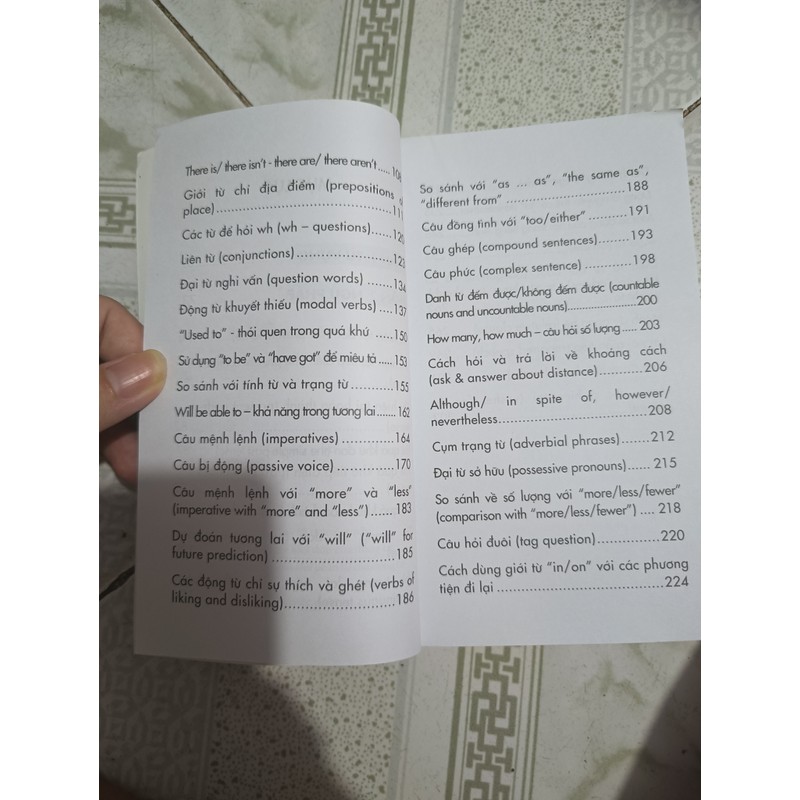 There is/ there isn't - there are/ there aren't..... 108
Giới từ chỉ địa điểm (prepositions of
place)...............................111
Các từ để hỏi wh (wh – questions)......120
Liên từ (conjunctions)......................123
Đại từ nghi vấn (question words) ......134
Động từ khuyết thiếu (modal verbs) ....137
“Used to” - thói quen trong quá khứ .....150
Sử dụng “to be” và “have got” để miêu tả ..... 153
So sánh với tính từ và trạng từ ...........155
Will be able to – khả năng trong tương lai....... 162
Câu mệnh lệnh (imperatives) ............164
Câu bị động (passive voice) .............170
Câu mệnh lệnh với “more” và “less”
(imperative with “more” and “less”)...... 183
Dự đoán tương lai với “will” (“will” for
future prediction) ............................185
Các động từ chỉ sự thích và ghét (verbs of
liking and disliking)..........................186
So sánh với “as ... as”, “the same as”,
“different from” ..............................188
Câu đồng tình với “too/either” ..........191
Câu ghép (compound sentences)........193
Câu phức (complex sentence) ............198
Danh từ đếm được/không đếm được (countable
nouns and uncountable nouns)........................200
How many, how much – câu hỏi số lượng..... 203
Cách hỏi và trả lời về khoảng cách
(ask & answer about distance)............206
Although/ in spite of, however/
nevertheless..................................208
Cụm trạng từ (adverbial phrases).......212
Đại từ sở hữu (possessive pronouns)...... 215
So sánh về số lượng với “more/less/fewer”
(comparison with “more/less/fewer”) .... 218
Câu hỏi đuôi (tag question)...............220
Cách dùng giới từ “in/on” với các phương
tiện đi lại .....................................224